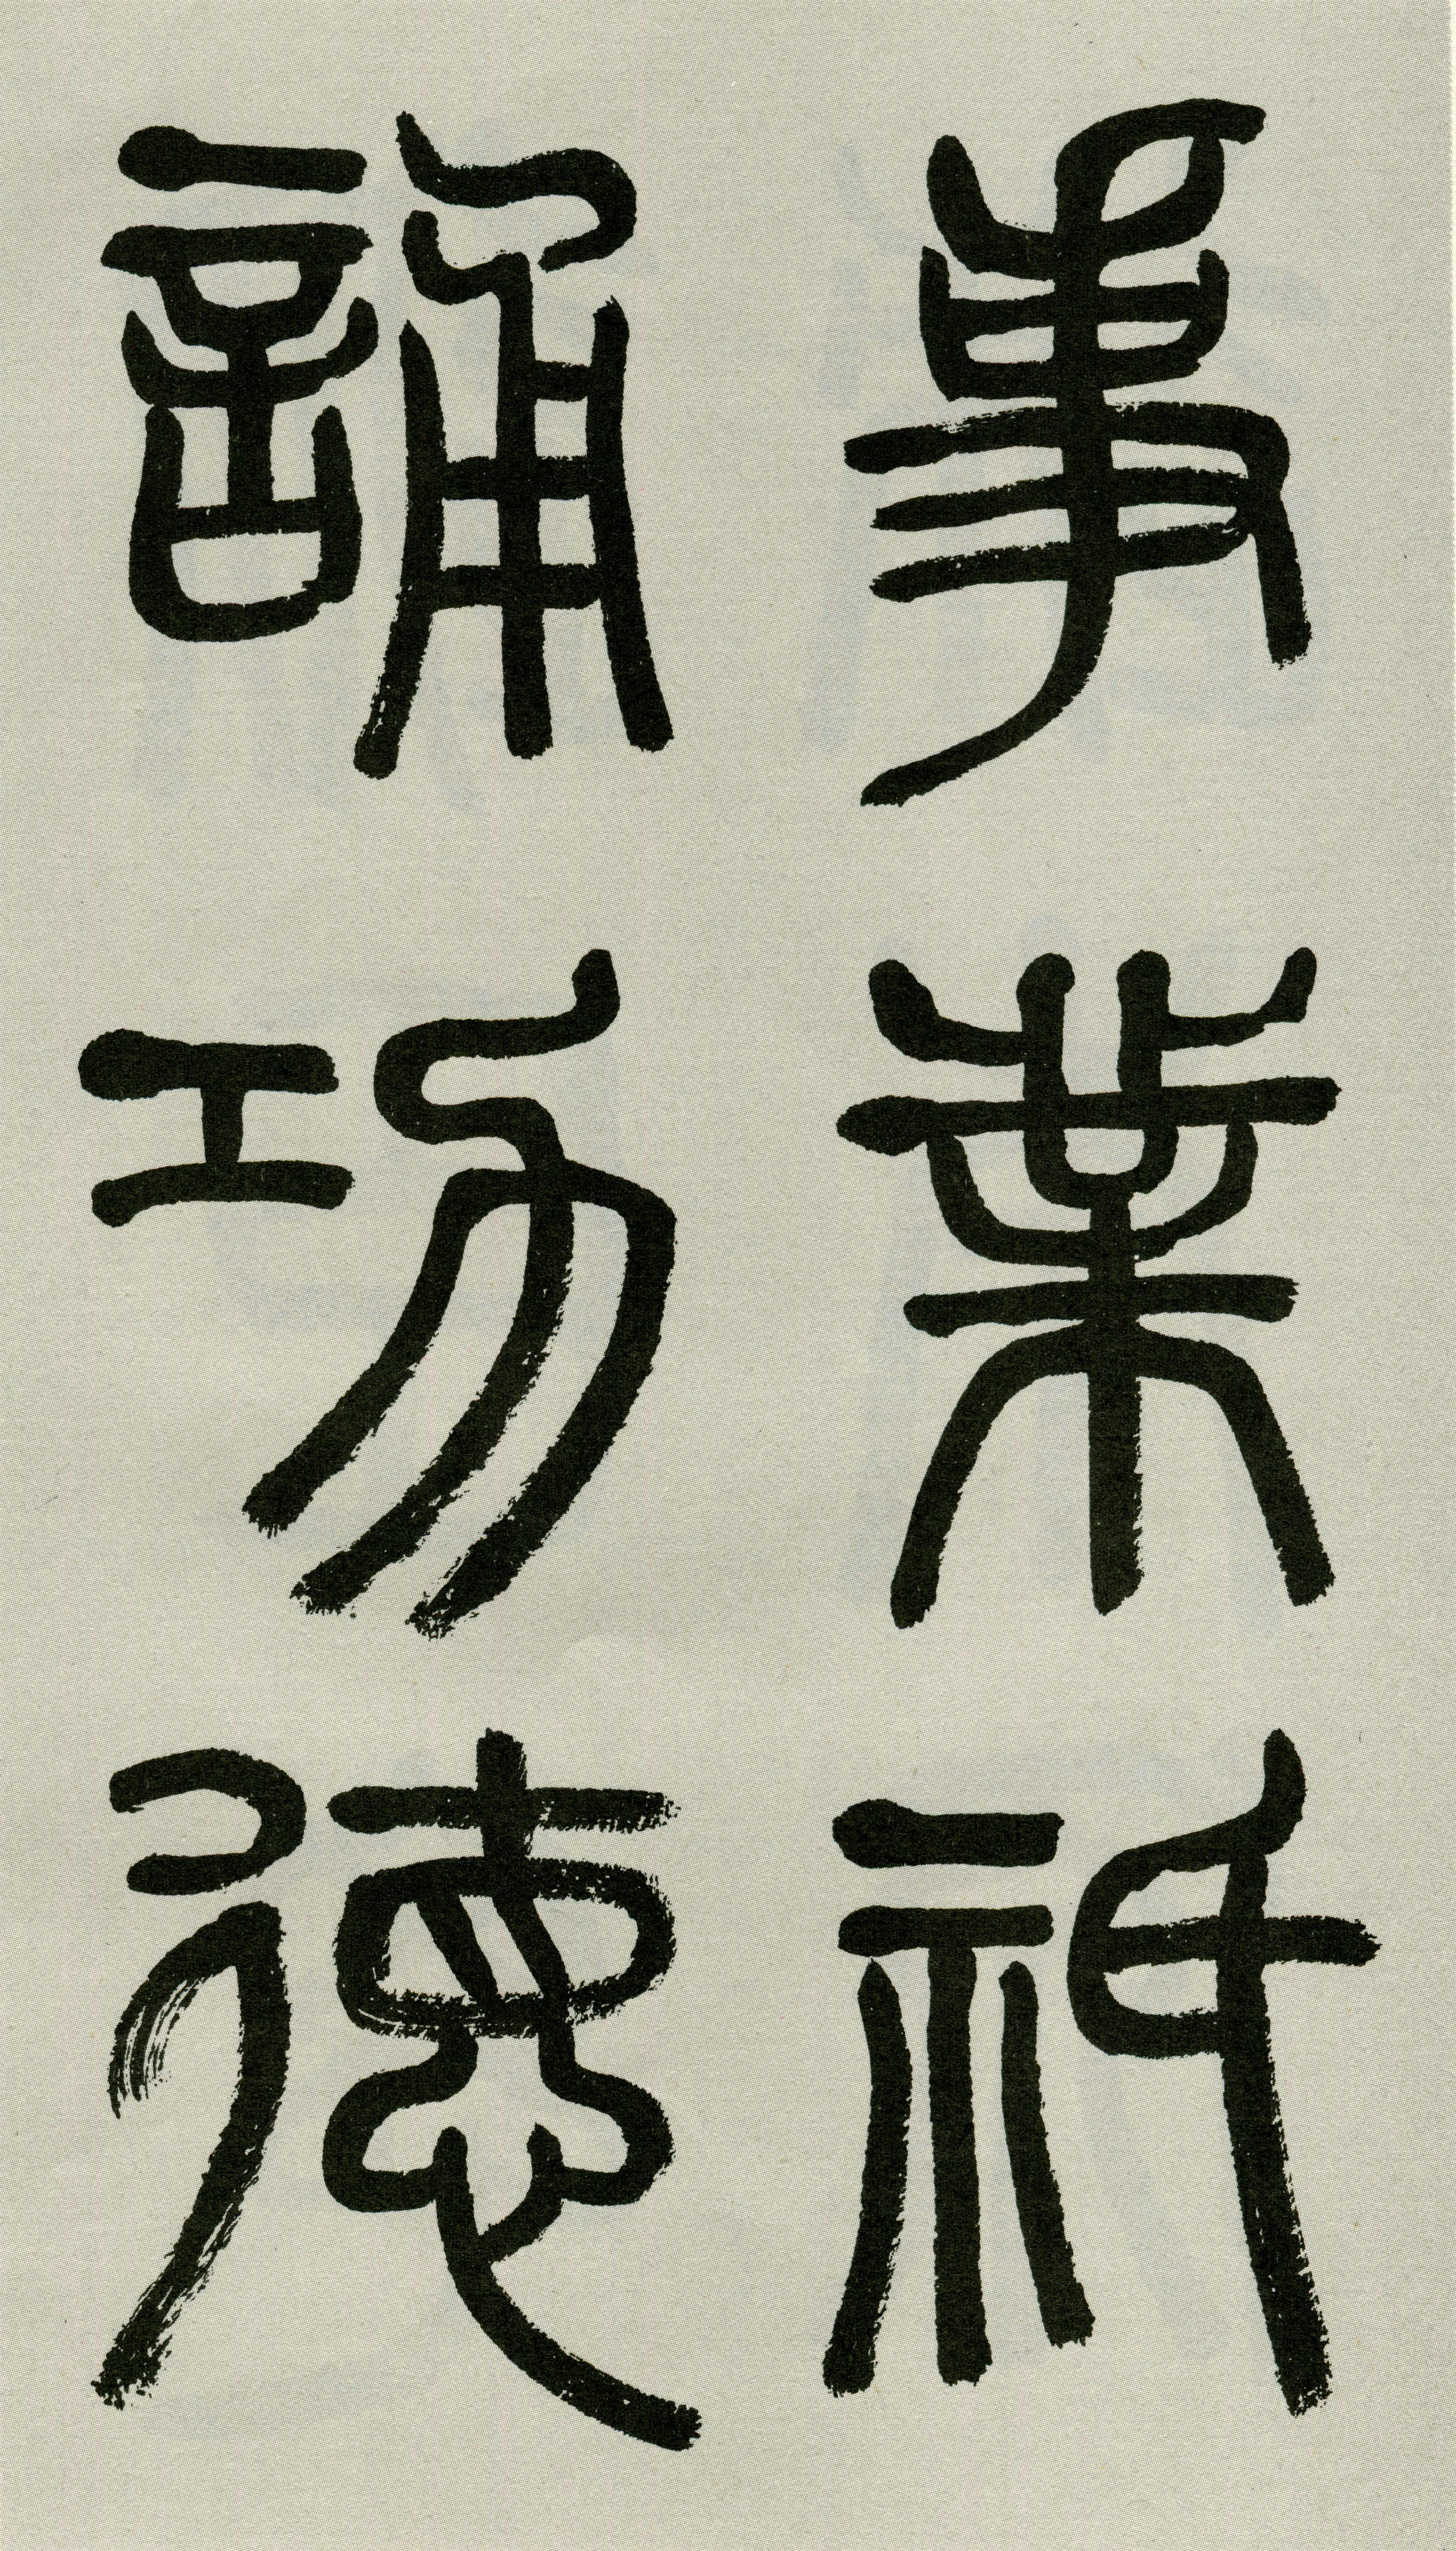 事業祇
誦功德